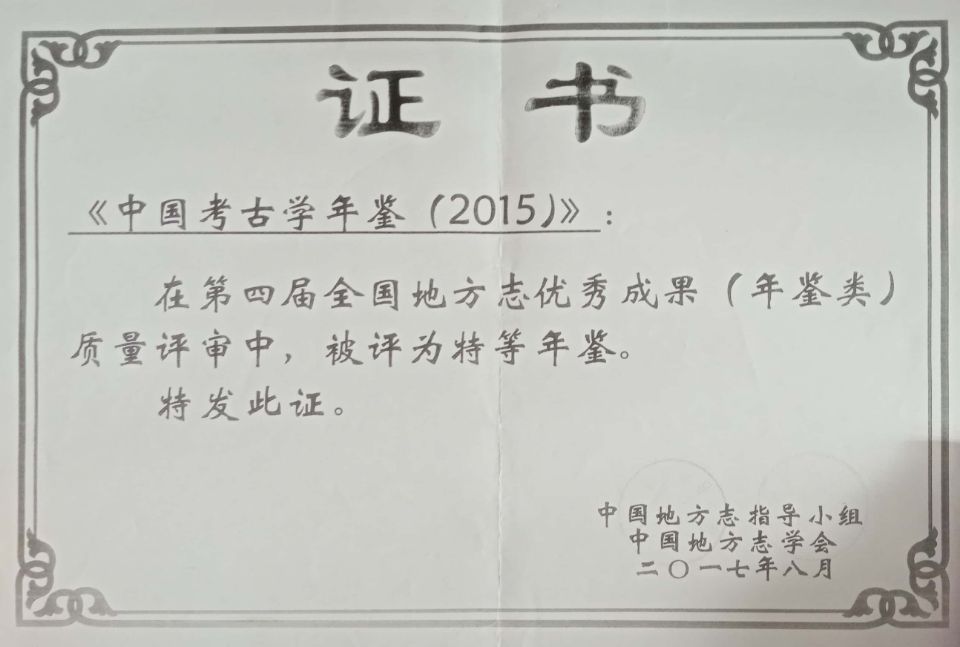 证书
《中国考古学年鉴（2015）》：
在第四届全国地方志优秀成果（年鉴类）
质量评审中，被评为特等年鉴。
特发此证。
中国地方志指导小组
中国地方志学会
二〇一七年八月